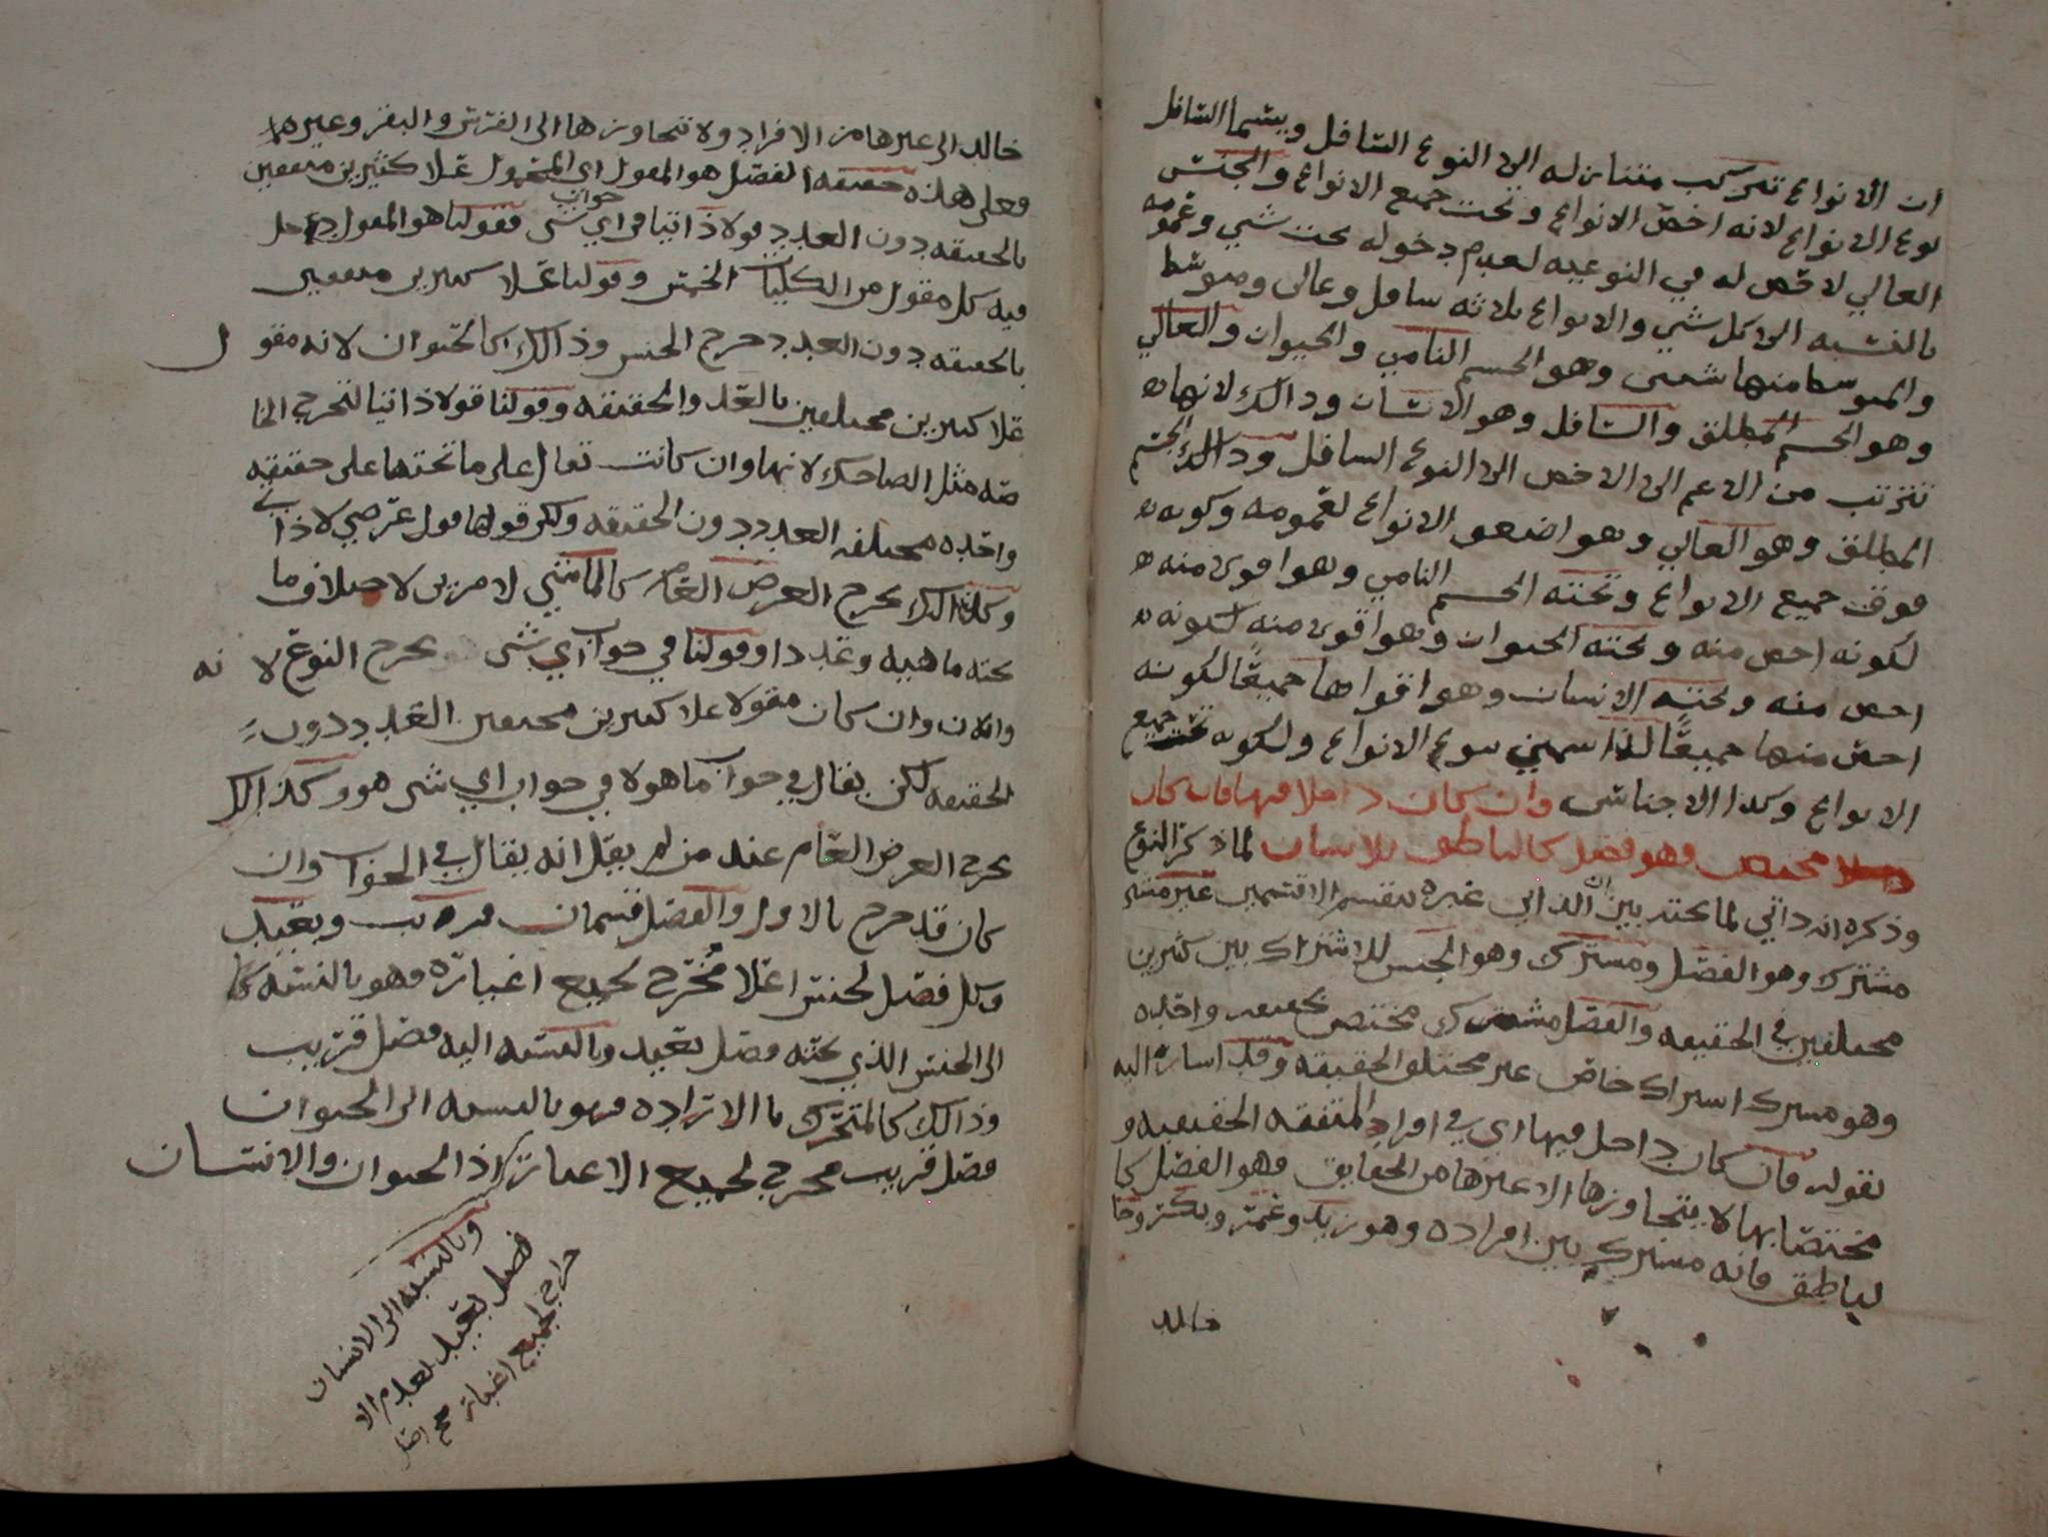 ان الانواع تتركب متنازله الى النوع السافل ويسما السافل
نوع الانواع لانه اخص الانواع وتحت جميع الانواع والجنس
العالي لا قص له في النوعيه لعدم دخوله تحت شي وعمومه
بالنسبه الى كل شي والانواع ثلاثه سافل وعالى ومتوسط
والمتوسط منها شيئين وهو الجسم النامي والحيوان والعالي
وهو الجسم المطلق والسافل وهو الانسان وذالك لانها
تترتب من الاعم الى الاخص الى النوع السافل وذالك الجسم
المطلق وهو العالي وهو اضعف الانواع لعمومه وكونه
فوق جميع الانواع وتحته الجسم النامي وهو اقوى منه
لكونه اخص منه وتحته الحيوان وهو اقوى منه لكونه
اخص منه وتحته الانسان وهو اقواها جميعًا لكونه
اخص منها جميعًا لذا سمي نوع الانواع ولكونه تحت جميع
الانواع وكذا الاجناس وان كان داخلا فيها فان كان
مختص فهو فصل كالناطق للانسان لما ذكر النوع
وذكر انه ذاتي لما تحته بين ان الذاتي غيره ينقسم الا قسمين غير
مشترك وهو الفصل ومشترك وهو الجنس للاشتراك بين كثيرين
مختلفين في الحقيقه والفصل مشترك مختص بحقيقه واحده
وهو مشترك اشتراك خاص غير مختلف الحقيقه وقد اشار اليه
بقوله فان كان داخل فيها اي في افراد المتفقه الحقيقيه و
مختصًا بها لا يتجاوزها الا غيرها من الحقايق فهو الفصل كا
لناطق فانه مشترك بين افراده وهو زيد وعمر وبكر وخا
خالد
خالد الى غيرها من الافراد ولا تتجاوزها الى الفرس والبقر وغيرهما
فعلى هذه حقيقه الفصل هو المقول اي المحمول علا كثيرين متفقين
بالحقيقه دون العدد قولا ذاتيا في جواب اي شي فقولنا هو المقول دخل
فيه كل مقول من الكليات الخمس وقولنا علا كثيرين متفقين
بالحقيقه دون العدد خرج الجنس وذالك كالحيوان لانه مقول
علا كثيرين مختلفين بالعدد والحقيقه وقولنا قولا ذاتيا لتخرج الخا
صه مثل الضاحك لانها وان كانت تقال على ما تحتها على حقيقه
واحده مختلفه العدد دون الحقيقه ولكن قولها قول عرضي لا ذاتي
وكذالك يخرج العرض العام كالماشي لامرين لاختلاف ما
تحته ماهيه وعددا وقولنا في جواب اي شي يخرج النوع لانه
وان كان مقولا علا كثيرين مختلفين العدد دون
الحقيقه لكن يقال في جواب ما هو لا في جواب اي شي هو وكذالك
يخرج العرض العام عند من لم يقل انه يقال في الجواب وان
كان قد خرج بالاول والفصل قسمان قريب وبعيد
وكل فصل لجنس اعلا مُخرج لجميع اغياره فهو بالنسبه
الى الجنس الذي تحته فصل بعيد وبالنسبه اليه فصل قريب
وذالك كالمتحرك بالاراده فهو بالنسبه الى الحيوان
فصل قريب مخرج لجميع الاغيار اذ الحيوان والانسان
وبالنسبه الى الانسان
فصل بعيد لعدم الا
خراج لجميع اغياره صح اصل